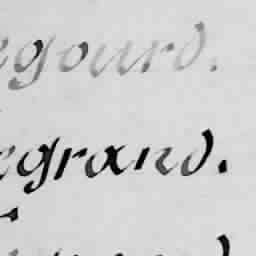 egourd.
egrand.